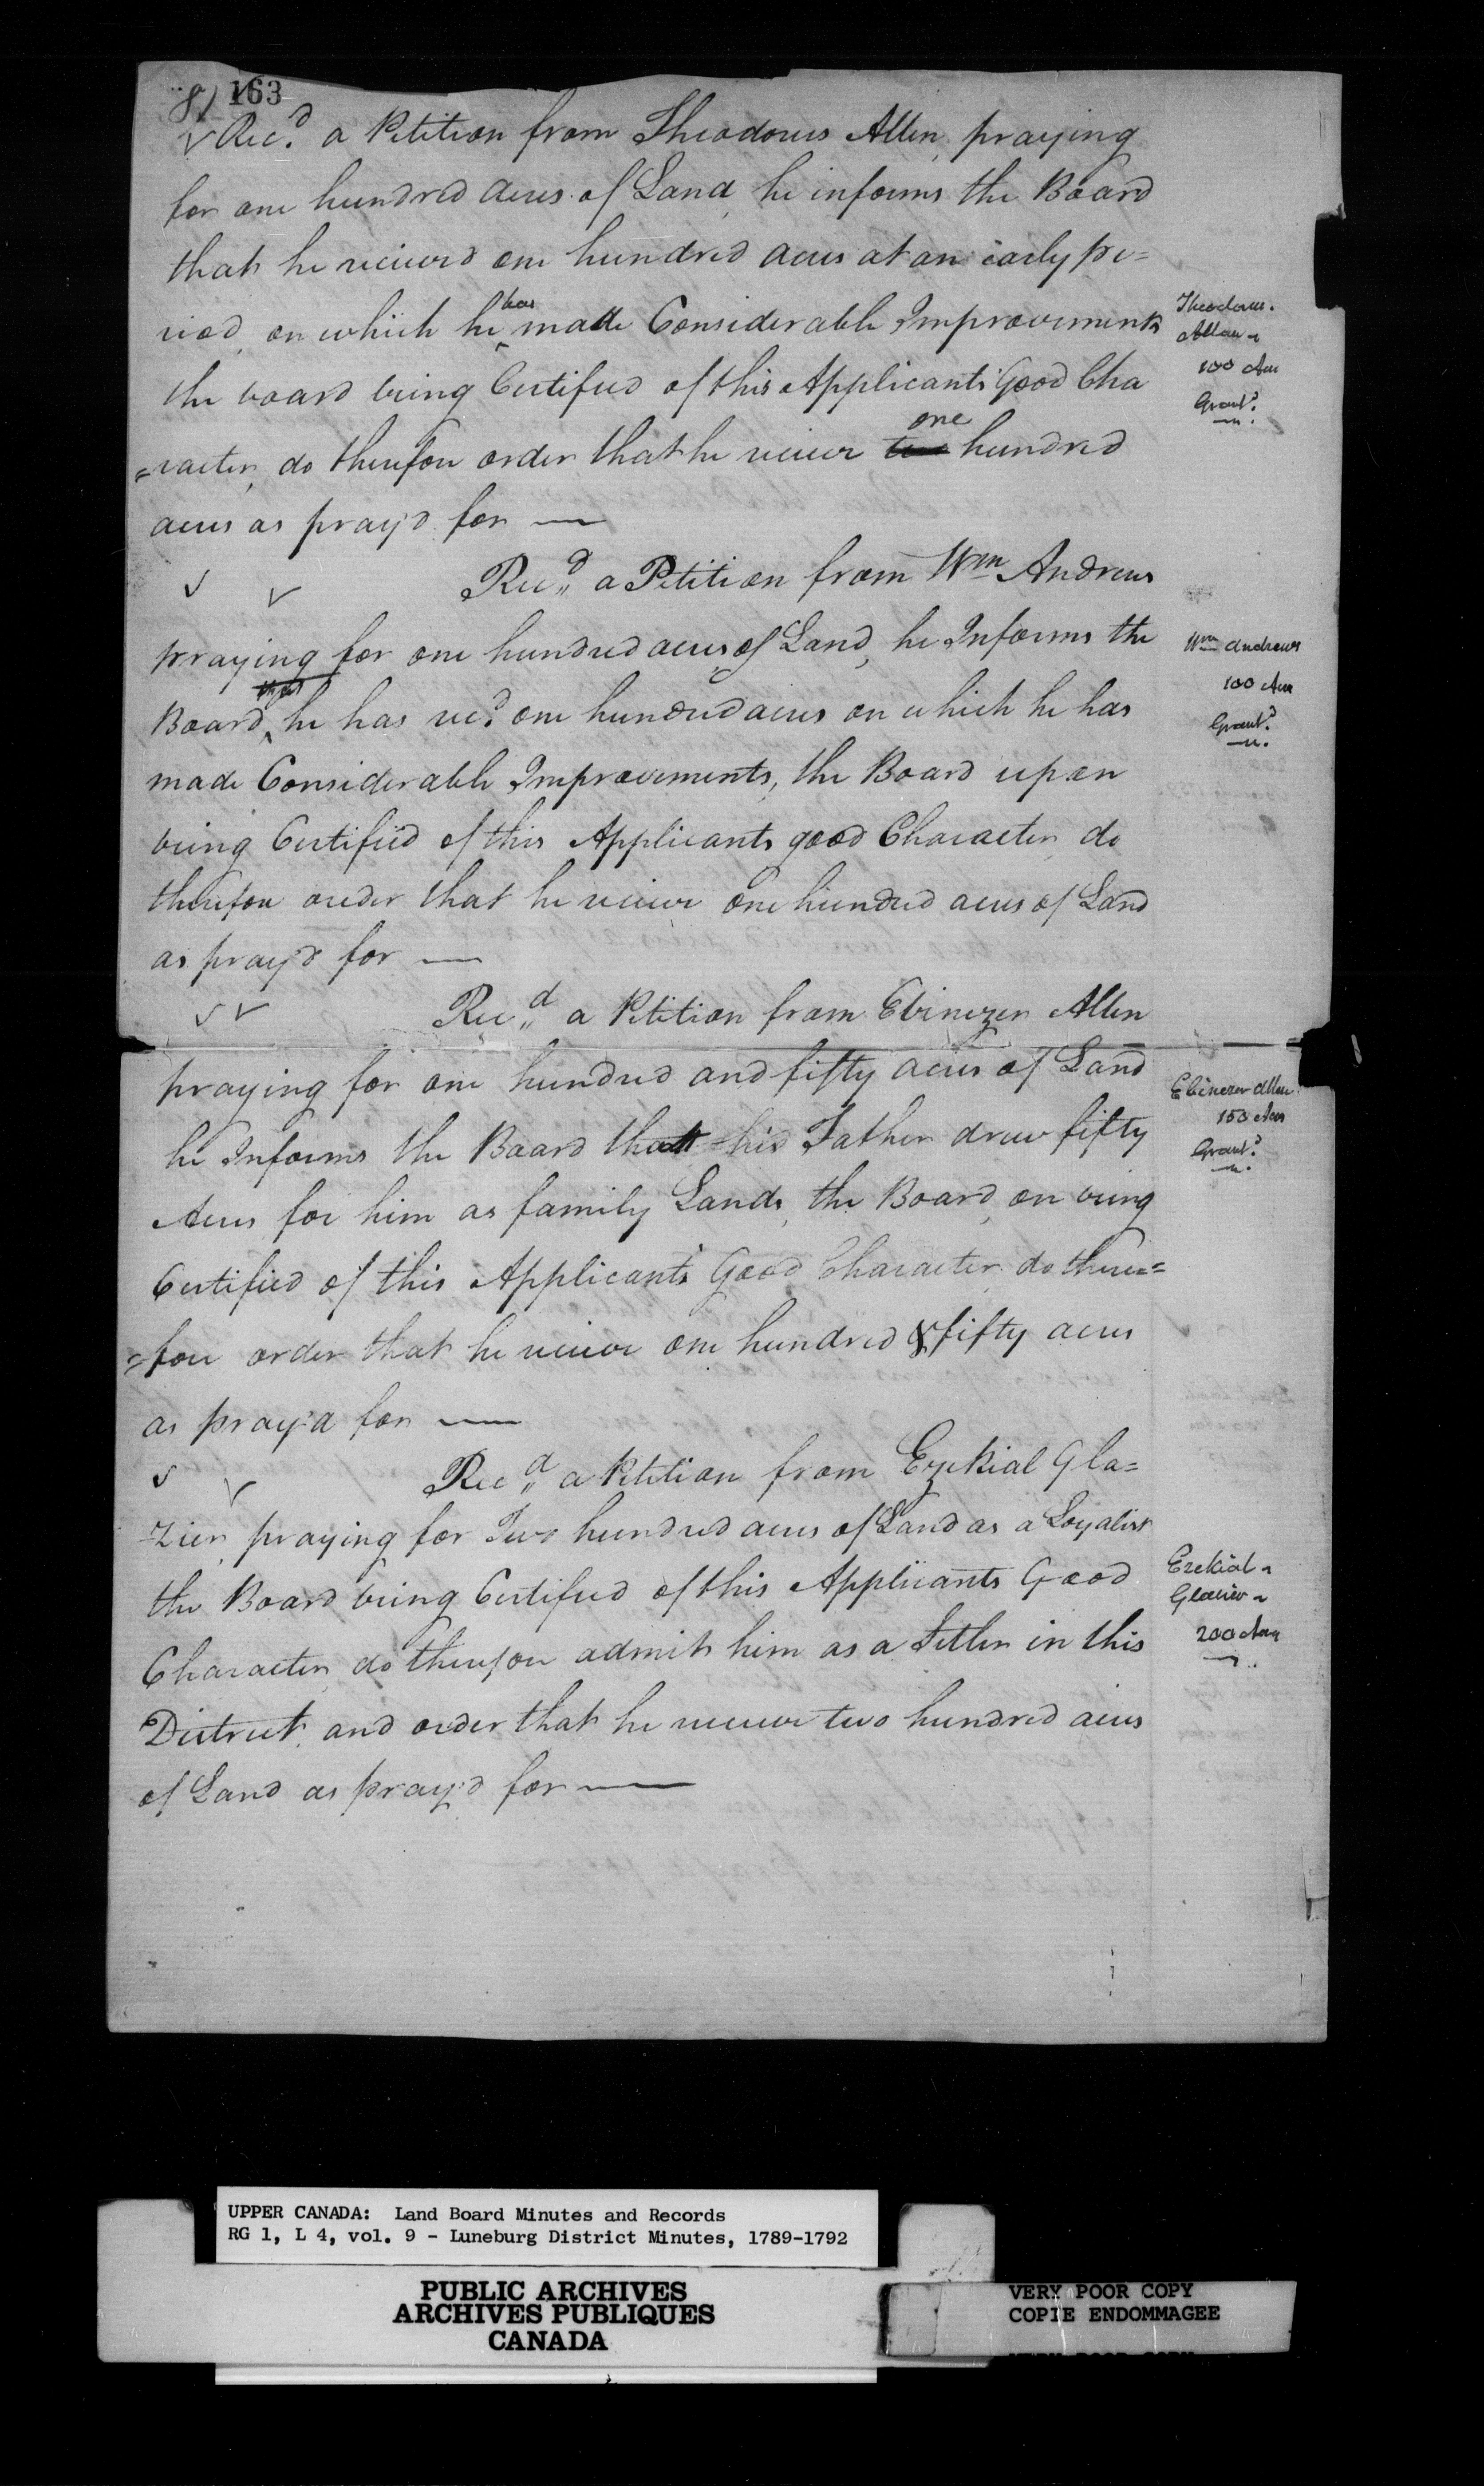 8) 163
Rec.d a Petition from Theodorus Allen, praying
for one hundred acres of Land, he informs the Board
that he received one hundred acres at an early pe=
riod, on which he has made Considerable Improvements
the board being Certified of this Applicants Good Cha
=racter, do therefore order that he receive two one hundred
acres as pray'd for —
Theodorus
Allan
100 Acres
Grant.d
Rec.d a Petition from Wm Andrews
praying for one hundred acres of Land, he Informs the
Board, that he has rec.d one hundred acres on which he has
made Considerable Improvements, the Board upon
being Certified of this Applicants good Character, do
therefore order that he receive one hundred acres of Land
as pray'd for —
Wm Andrews
100 Acres
Grant.d
Rec.d a Petition from Ebinezer Allen
praying for one hundred and fifty acres of Land
he Informs the Board that his Father drew fifty
Acres for him as family Lands, the Board, on being
Certified of this Applicant's Good Character do there=
=fore order that he receive one hundred & fifty acres
as pray'd for —
Ebinezer Allen
150 Acres
Grant.d
Rec.d a Petition from Ezekial Gla=
zier, praying for Two hundred acres of Land as a Loyalist
the Board being Certified of this Applicants Good
Character, do therefore admit him as a Settler in this
District, and order that he receive two hundred acres
of Land as pray'd for —
Ezekial
Glazier
200 Acres
UPPER CANADA: Land Board Minutes and Records
RG 1, L 4, vol. 9 - Luneburg District Minutes, 1789-1792
PUBLIC ARCHIVES
ARCHIVES PUBLIQUES
CANADA
VERY POOR COPY
COPIE ENDOMMAGEE